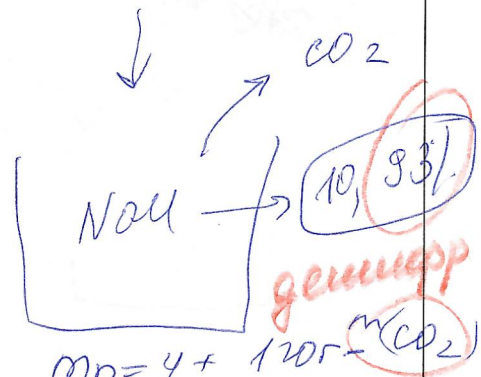 CO2
NaOH
10,93%
дешифр
mр = 4 + 120г - m(CO2)